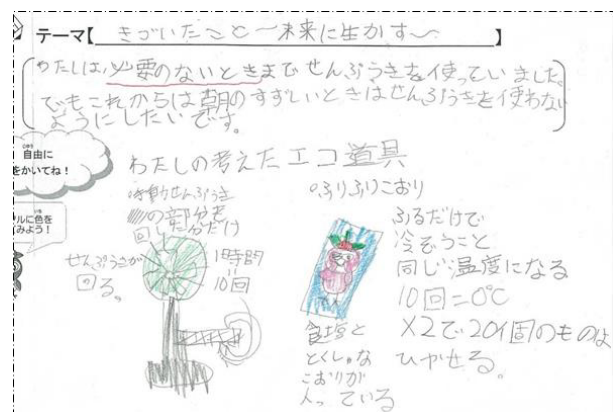 テーマ【 きづいたこと〜未来に生かす〜 】
わたしは、必要のないときまでせんぷうきを使っていました。
でもこれからは朝のすずしいときはせんぷうきを使わない
ようにしたいです。
自由に
をかいてね！
ルに色を
みよう！
わたしの考えたエコ道具
の部分を
回した分だけ
せんぷうきが
回る。
1時間
=
10回
ふりふりこおり
ふるだけで
冷ぞうこと
同じ温度になる
10回=0℃
×2で20個のもの
ひやせる。
食塩と
とくしゅな
こおりが
入っている